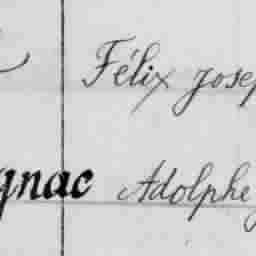 Félix Josep
gnac Adolphe J